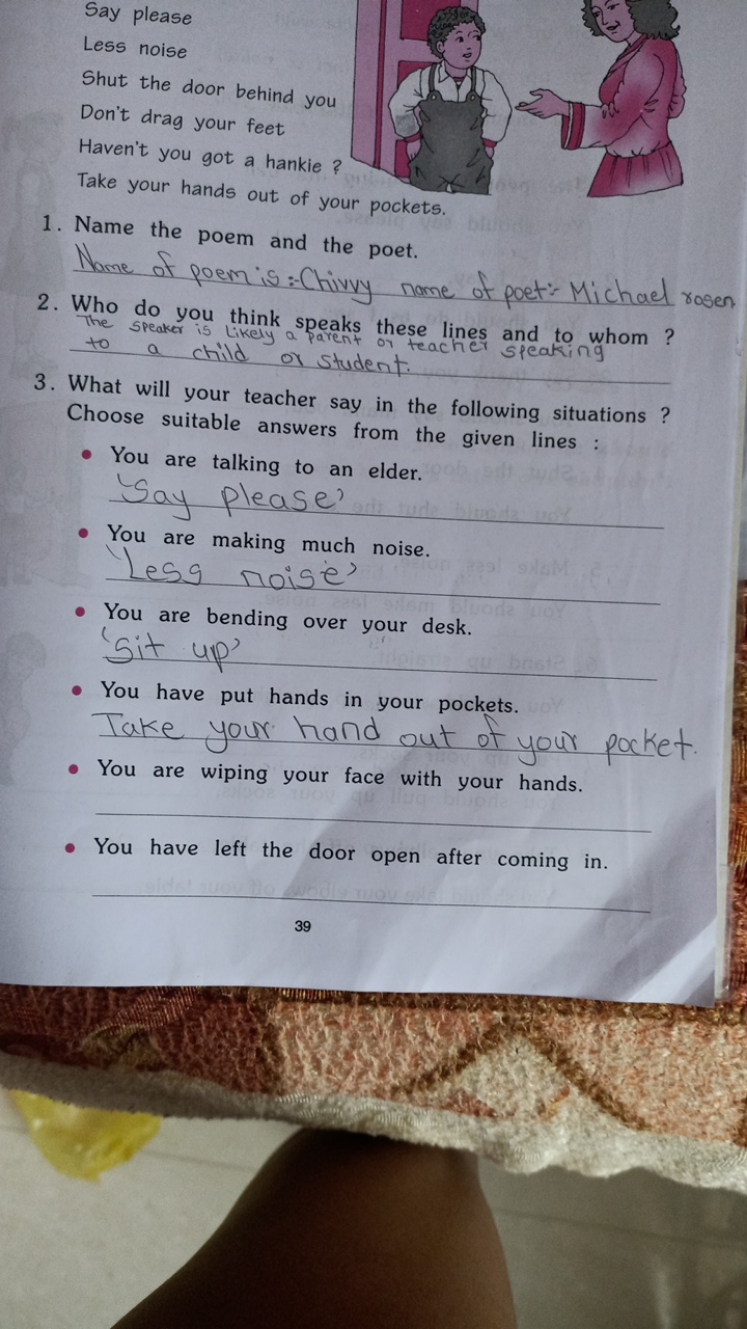 Say please
Less noise
Shut the door behind you
Don't drag your feet
Haven't you got a hankie ?
Take your hands out of your pockets.
1. Name the poem and the poet.
Name of poem is :- Chivvy name of poet:- Michael rosen
2. Who do you think speaks these lines and to whom ?
The speaker is likely a parent or teacher speaking
to a child or student.
3. What will your teacher say in the following situations ?
Choose suitable answers from the given lines :
• You are talking to an elder.
'Say please'
• You are making much noise.
'Less noise'
• You are bending over your desk.
'Sit up'
• You have put hands in your pockets.
Take your hand out of your pocket.
• You are wiping your face with your hands.
• You have left the door open after coming in.
39